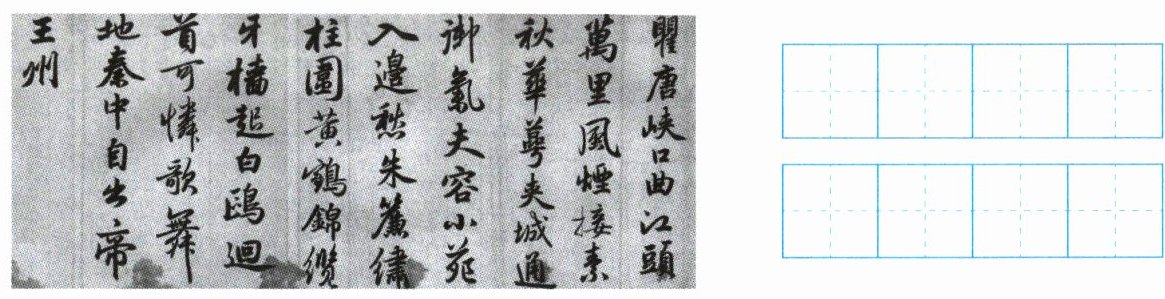 瞿唐峽口曲江頭
萬里風煙接素
秋華萼夹城通
御氣夫容小苑
入邊愁朱簾繡
柱圍黄鶴錦纜
牙檣起白鷗迴
首可憐歌舞
地秦中自出帝
王州